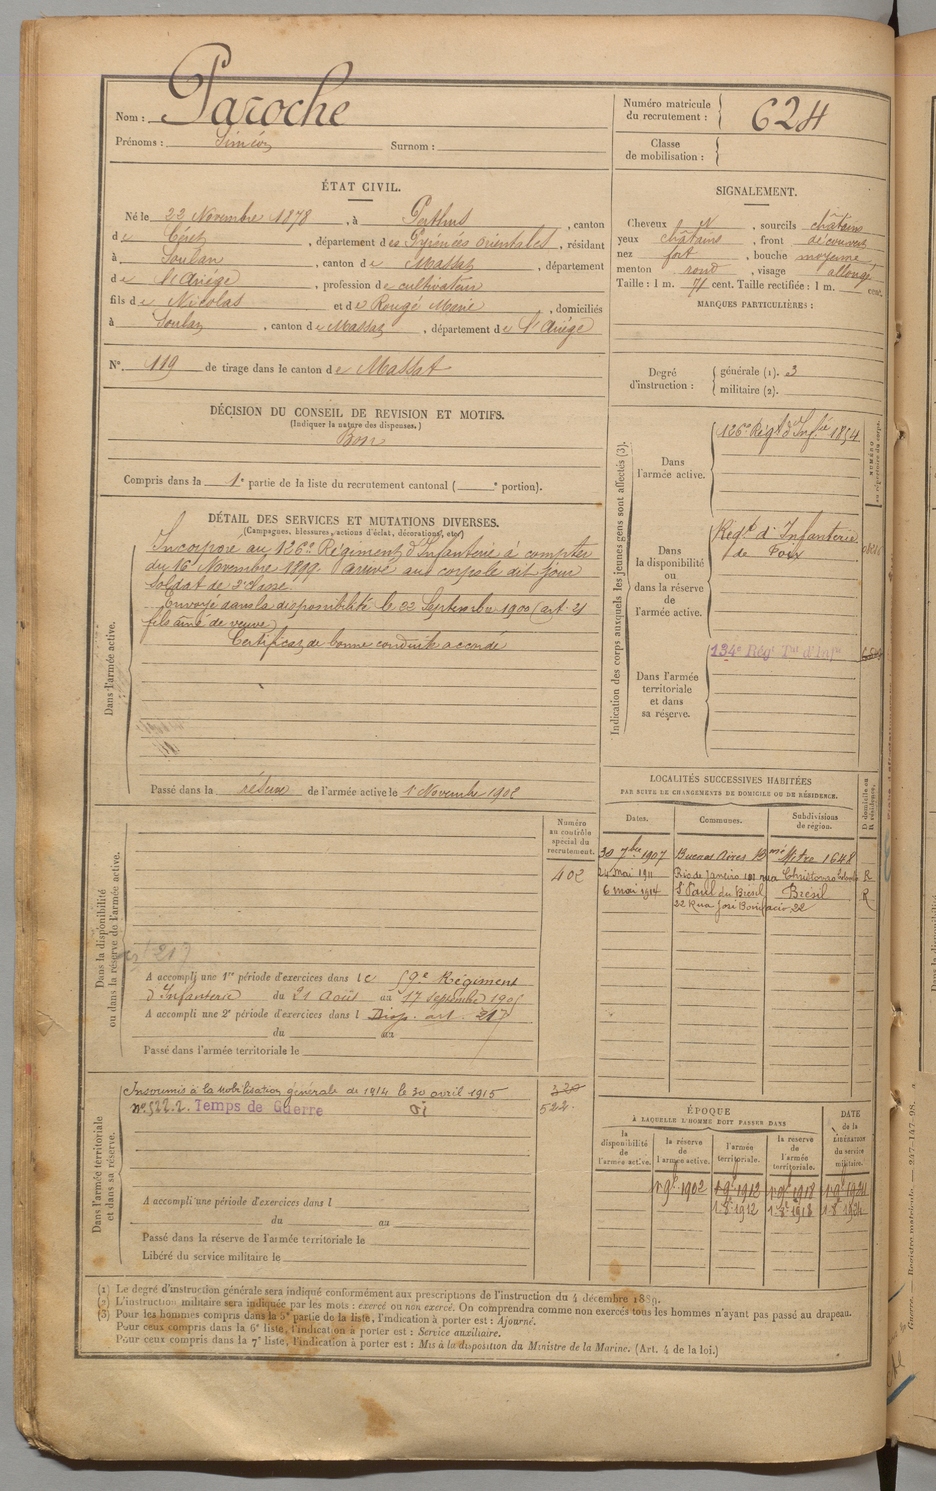 Nom : Paroche
Prénoms : Siméon Surnom :
Numéro matricule du recrutement : 624
Classe de mobilisation :
ÉTAT CIVIL.
Né le 22 Novembre 1878, à Perthus, canton
de Céret, département des Pyrénées Orientales, résidant
à Soulan, canton de Massat, département
de l'Ariège, profession de cultivateur
fils de Nicolas et de Rougé Marie, domiciliés
à Soulan, canton de Massat, département de l'Ariège
N°. 119 de tirage dans le canton de Massat
SIGNALEMENT.
Cheveux N, sourcils châtains
yeux châtains, front découvert
nez fort, bouche moyenne
menton rond, visage allongé
Taille : 1 m. 74 cent. Taille rectifiée : 1 m. cent.
MARQUES PARTICULIÈRES :
Degré d'instruction :
générale (1). 3
militaire (2).
DÉCISION DU CONSEIL DE REVISION ET MOTIFS.
(Indiquer la nature des dispenses.)
Bon
Compris dans la 1e partie de la liste du recrutement cantonal ( e portion).
DÉTAIL DES SERVICES ET MUTATIONS DIVERSES.
(Campagnes, blessures, actions d'éclat, décorations, etc.)
Dans l'armée active.
Incorporé au 126e Régiment d'Infanterie à compter
du 16 Novembre 1899. arrivé au corps le dit jour
soldat de 2e classe.
Envoyé dans la disponibilité le 22 Septembre 1900 (art. 21
fils aîné de veuve)
Certificat de bonne conduite accordé
Passé dans la réserve de l'armée active le 1 Novembre 1902
Indication des corps auxquels les jeunes gens sont affectés (3).
NUMÉRO au répertoire du corps.
Dans l'armée active.
126e Régt d'Infie 1854
Dans la disponibilité ou dans la réserve de l'armée active.
Régt d'Infanterie
de Foix
Dans l'armée territoriale et dans sa réserve.
134e Régt Tal d'Infie
LOCALITÉS SUCCESSIVES HABITÉES
PAR SUITE DE CHANGEMENTS DE DOMICILE OU DE RÉSIDENCE.
Dates. Communes. Subdivisions de région. D domicile ou R résidence.
30 7bre 1907 Buenos Aires Bmé Mitre 1648
24 mai 1911 Rio de Janeiro 101 rua R
6 mai 1914 St Paul du Brésil Brésil R
22 Rua José Bonifacio 22
Dans la disponibilité ou dans la réserve de l'armée active.
Numéro au contrôle spécial du recrutement.
402
A accompli une 1re période d'exercices dans le 59e Régiment
d'Infanterie du 21 Août au 17 septembre 1905
A accompli une 2e période d'exercices dans l Disp. art. 217
du au
Passé dans l'armée territoriale le
Dans l'armée territoriale et dans sa réserve.
Insoumis à la mobilisation générale de 1914 le 30 avril 1915
n° 522.2. Temps de Guerre
522.
A accompli une période d'exercices dans l
du au
Passé dans la réserve de l'armée territoriale le
Libéré du service militaire le
ÉPOQUE
À LAQUELLE L'HOMME DOIT PASSER DANS
la disponibilité de l'armée active. la réserve de l'armée active. l'armée territoriale. la réserve de l'armée territoriale. DATE de la LIBÉRATION du service militaire.
1 9bre 1902 1 9bre 1912 1 9bre 1918 1 9bre 1924
1.8bre 1912 1.8bre 1918 1.8bre 1924
(1) Le degré d'instruction générale sera indiqué conformément aux prescriptions de l'instruction du 4 décembre 1889.
(2) L'instruction militaire sera indiquée par les mots : exercé ou non exercé. On comprendra comme non exercés tous les hommes n'ayant pas passé au drapeau.
(3) Pour les hommes compris dans la 5e partie de la liste, l'indication à porter est : Ajourné.
Pour ceux compris dans la 6e liste, l'indication à porter est : Service auxiliaire.
Pour ceux compris dans la 7e liste, l'indication à porter est : Mis à la disposition du Ministre de la Marine. (Art. 4 de la loi.)